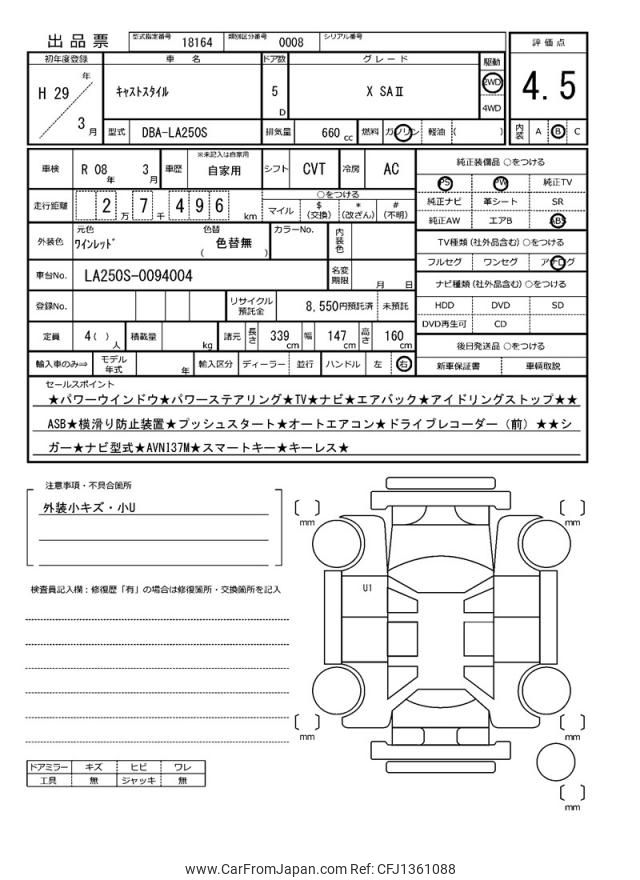 出品票
型式指定番号 18164 類別区分番号 0008 シリアル番号
評価点
4.5
初年度登録 車名 ドア数 グレード 駆動
H 29 年 3 月
キャストスタイル 5 D X SAⅡ 2WD 4WD
型式 DBA-LA250S 排気量 660 cc 燃料 ガソリン 軽油 ( )
内装 A B C
車検 R 08 年 3 月 車歴 ※未記入は自家用 自家用 シフト CVT 冷房 AC
純正装備品 ○をつける
PS PW 純正TV
純正ナビ 革シート SR
純正AW エアB ABS
走行距離 2 万 7 千 4 9 6 km
○をつける
マイル $(交換) *(改ざん) #(不明)
外装色 元色 ワインレッド 色替 色替無 ( ) カラーNo. 内装色
TV種類(社外品含む)○をつける
フルセグ ワンセグ アナログ
車台No. LA250S-0094004 名変期限 月 日
ナビ種類(社外品含む)○をつける
HDD DVD SD
DVD再生可 CD
登録No. リサイクル預託金 8,550円預託済 未預託
定員 4( ) 人 積載量 kg 諸元 長さ 339 cm 幅 147 cm 高さ 160 cm
後日発送品 ○をつける
新車保証書 車輌取説
輸入車のみ⇒ モデル年式 年 輸入区分 ディーラー 並行 ハンドル 左 右
セールスポイント
★パワーウインドウ★パワーステアリング★TV★ナビ★エアバック★アイドリングストップ★★
ASB★横滑り防止装置★プッシュスタート★オートエアコン★ドライブレコーダー(前)★★シ
ガー★ナビ型式★AVN137M★スマートキー★キーレス★
注意事項・不具合箇所
外装小キズ・小U
検査員記入欄:修復歴「有」の場合は修復箇所・交換箇所を記入
U1
mm
mm
mm
mm
mm
ドアミラー キズ ヒビ ワレ
工具 無 ジャッキ 無
www.CarFromJapan.com Ref: CFJ1361088